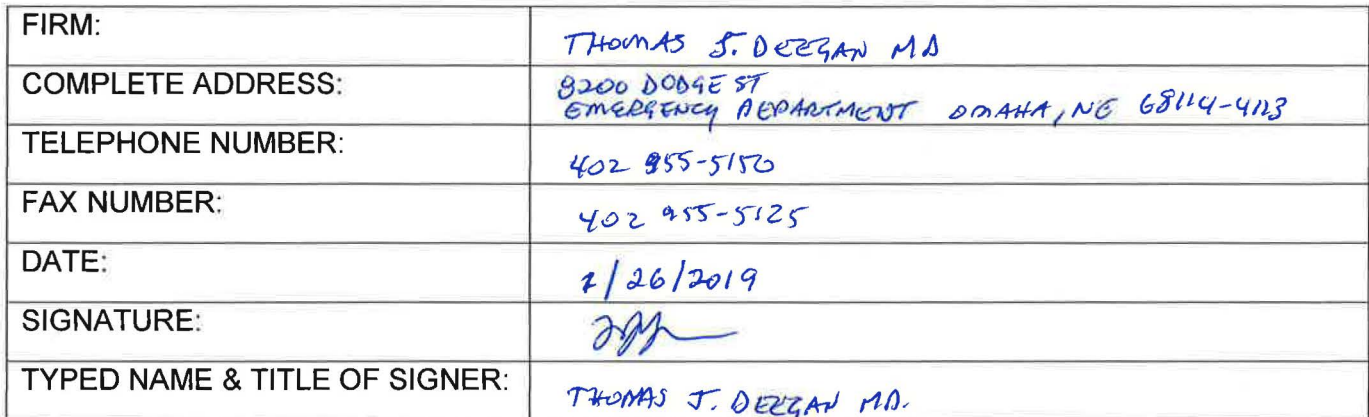 FIRM: THOMAS J. DEEGAN MD
COMPLETE ADDRESS: 8200 DODGE ST
EMERGENCY DEPARTMENT OMAHA, NE 68114-4113
TELEPHONE NUMBER: 402 955-5150
FAX NUMBER: 402 955-5125
DATE: /26/2019
SIGNATURE:
TYPED NAME & TITLE OF SIGNER: THOMAS J. DEEGAN MD.